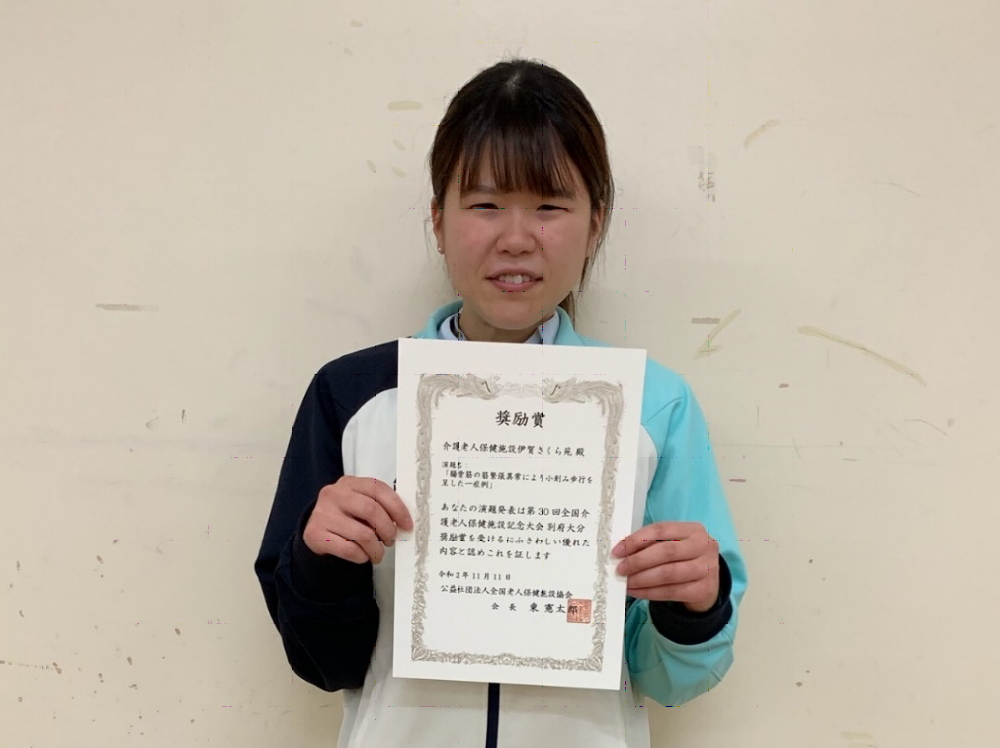 奨励賞
介護老人保健施設伊賀さくら苑 殿
演題名:
「腸骨筋の筋緊張異常により小刻み歩行を
呈した一症例」
あなたの演題発表は第30回全国介
護老人保健施設記念大会 別府大分
奨励賞を受けるにふさわしい優れた
内容と認めこれを証します
令和2年11月11日
公益社団法人全国老人保健施設協会
会 長 東 憲太郎